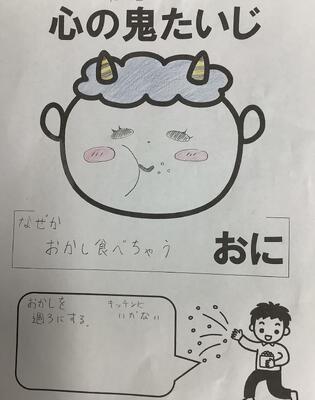 心の鬼たいじ
なぜか
おかし食べちゃう
おに
おかしを
週3にする。
キッチンに
いかない